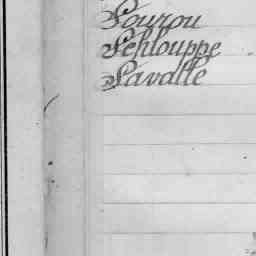 Pourou
Schlouppe
Savalle